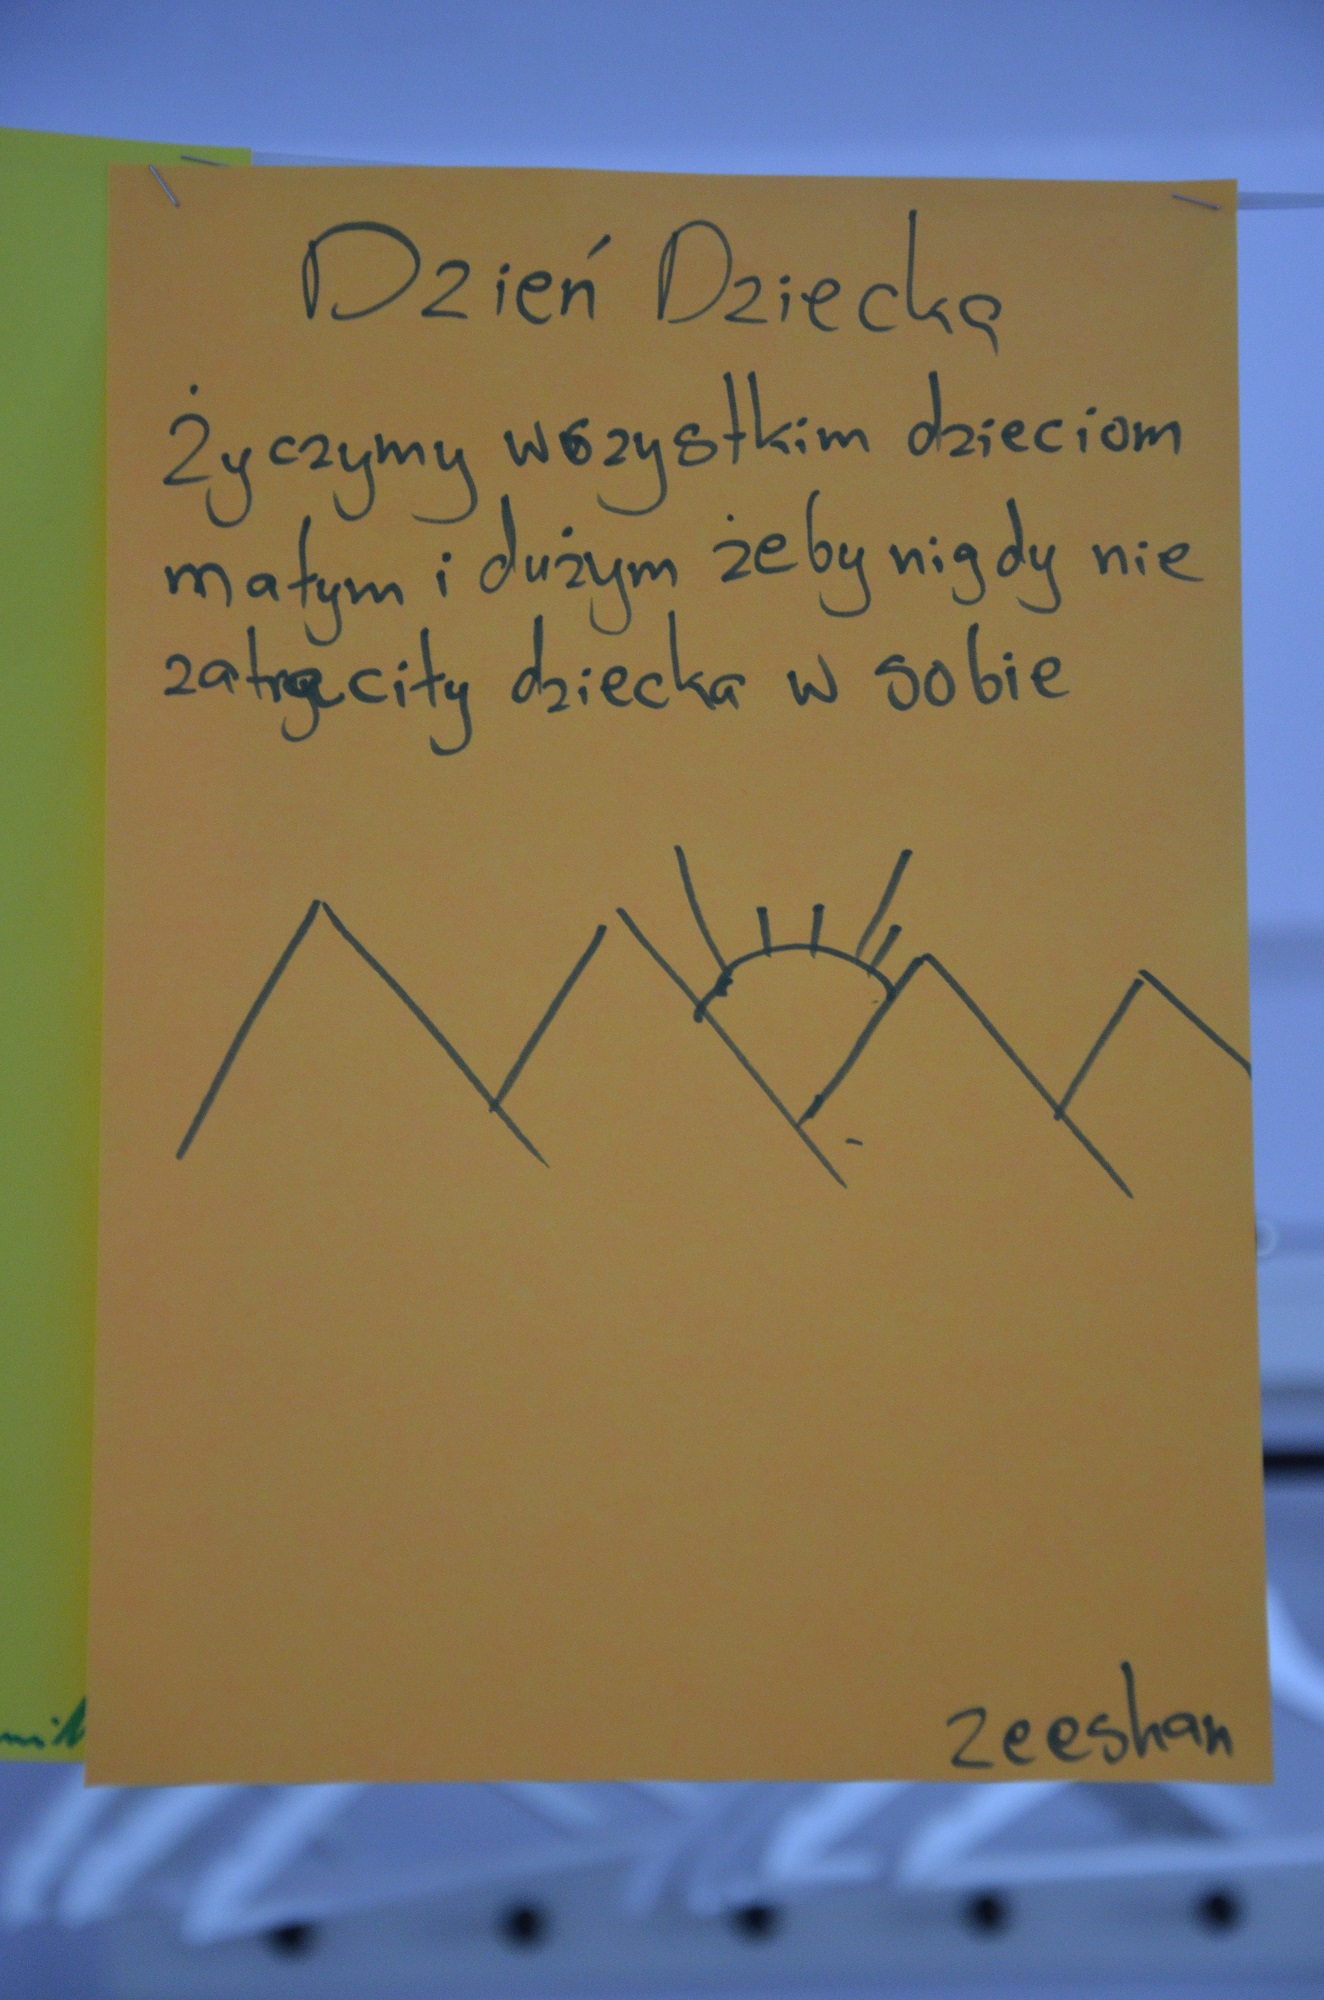 Dzień Dziecka
Życzymy wszystkim dzieciom
małym i dużym żeby nigdy nie
zatraciły dziecka w sobie
zeeshan